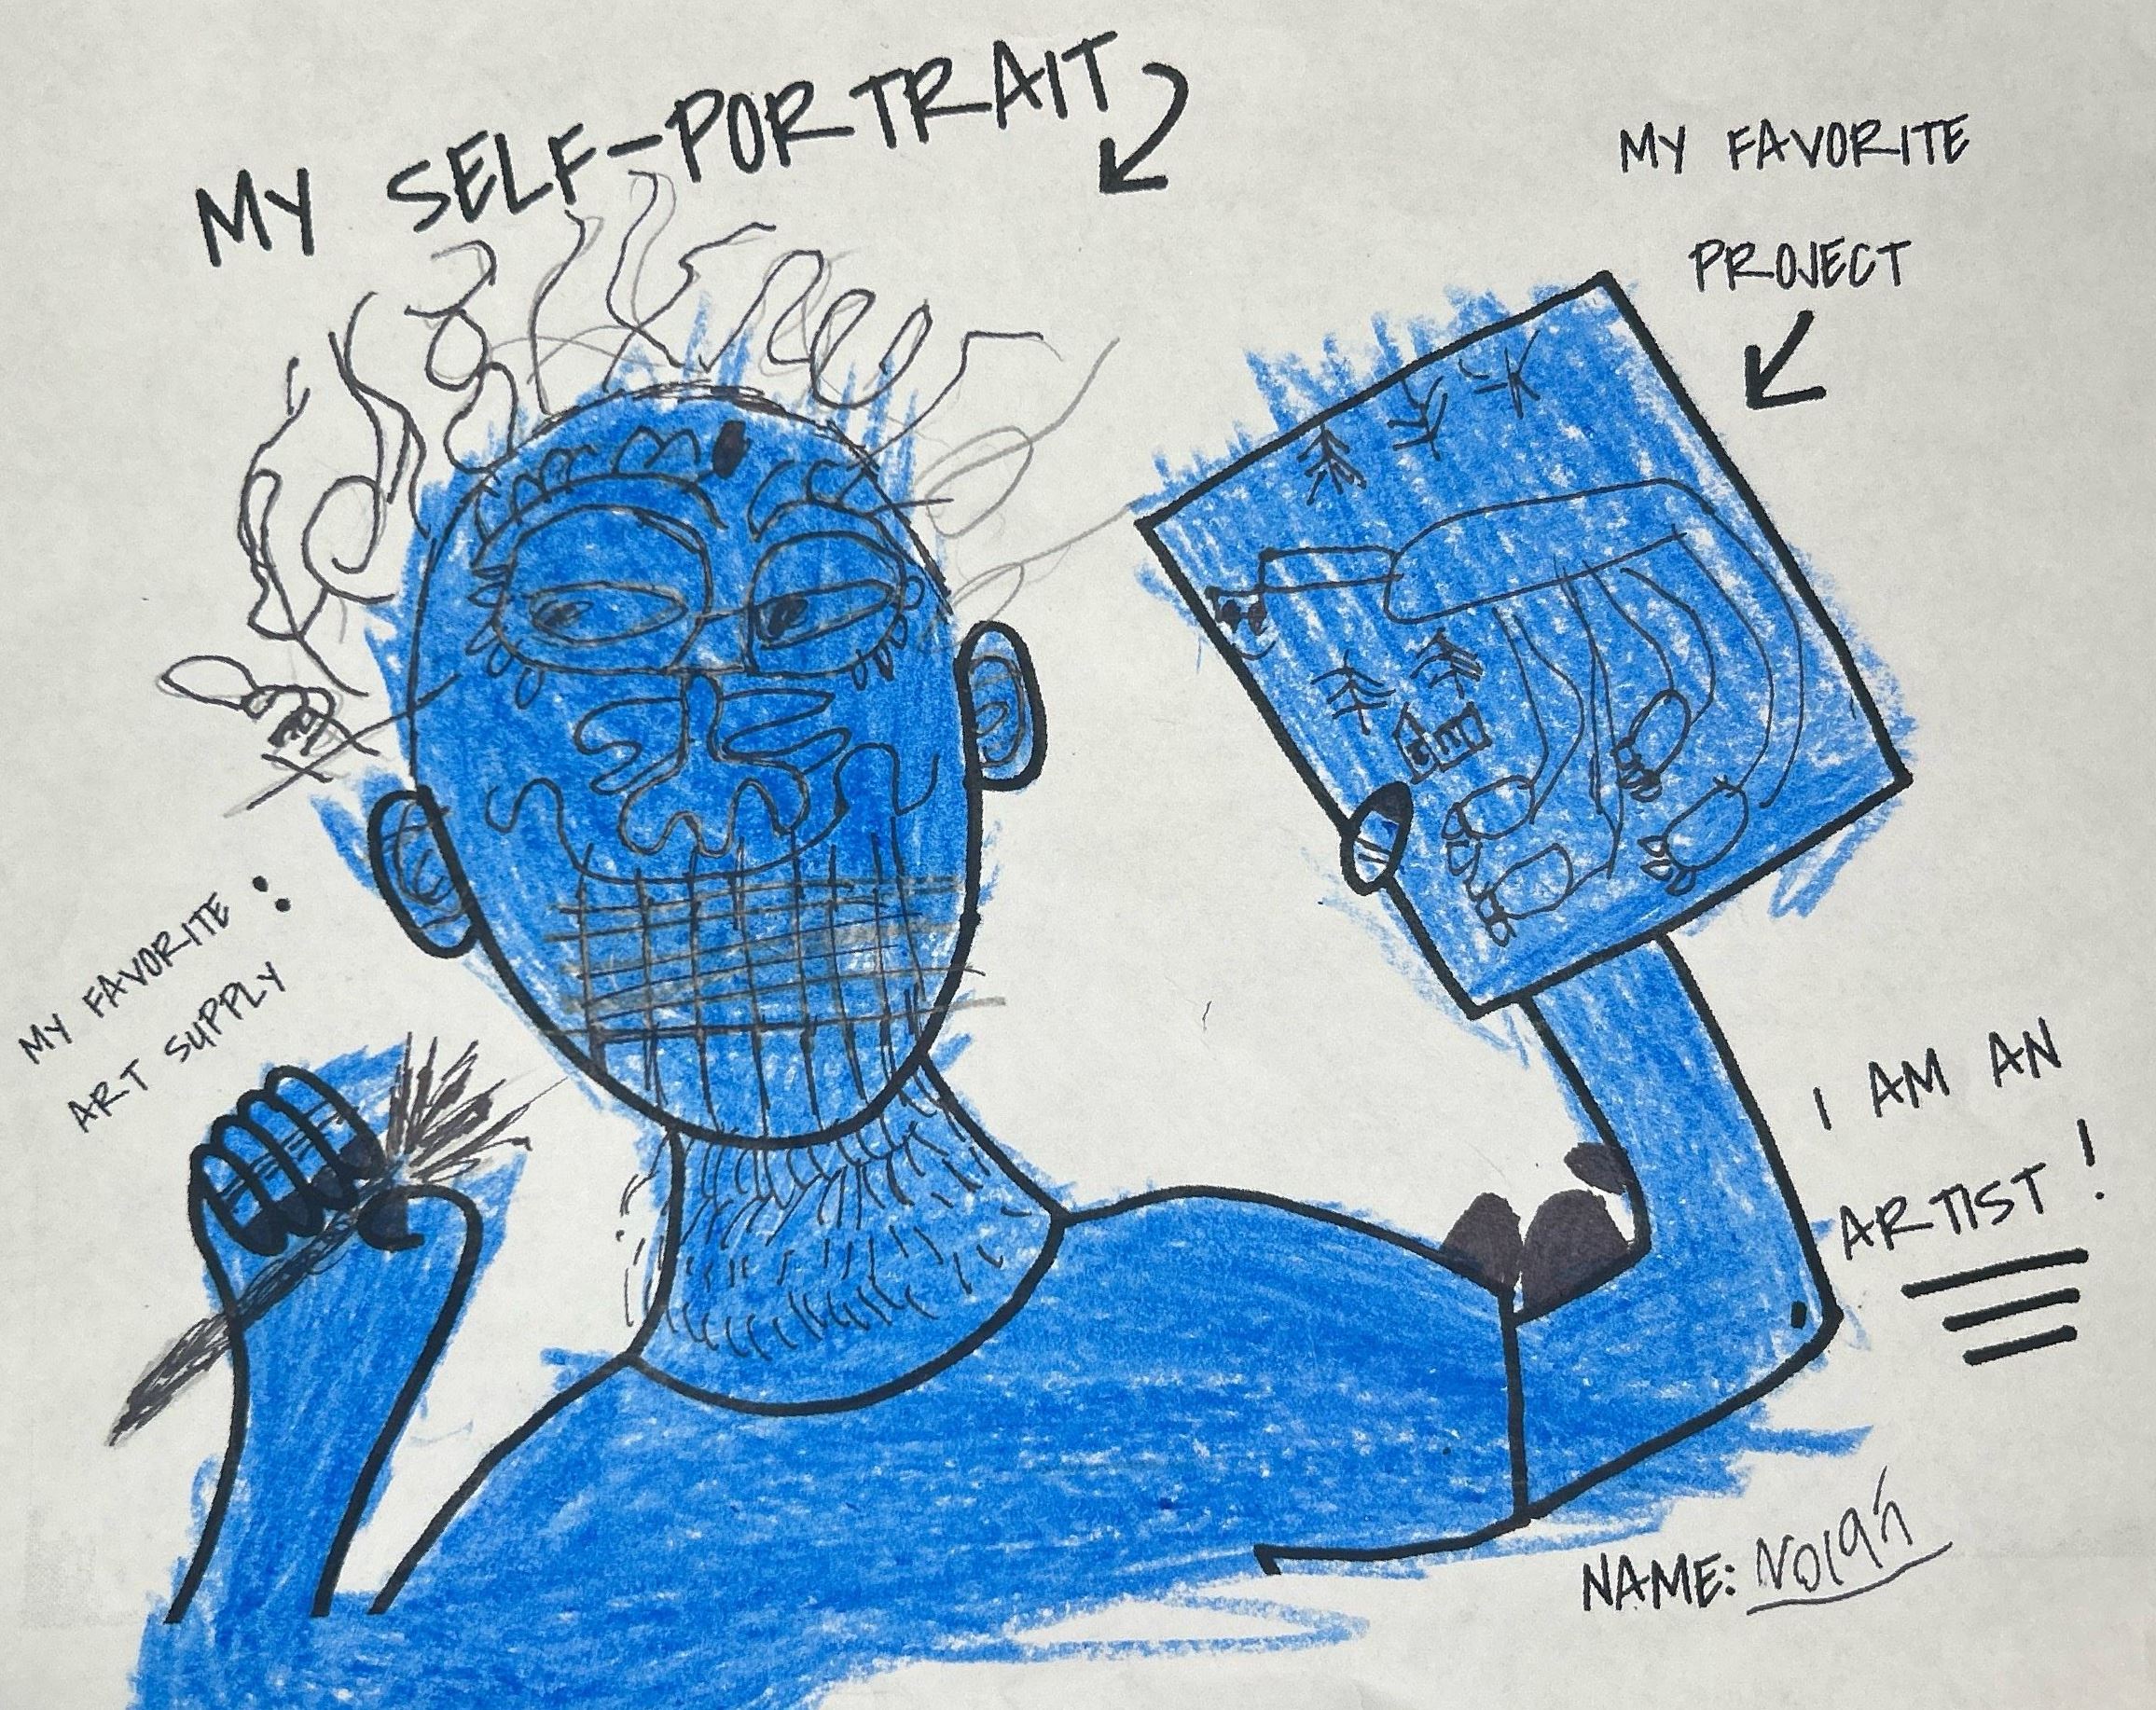 MY SELF-PORTRAIT
MY FAVORITE
PROJECT
MY FAVORITE :
ART SUPPLY
I AM AN
ARTIST!
NAME: Nolan